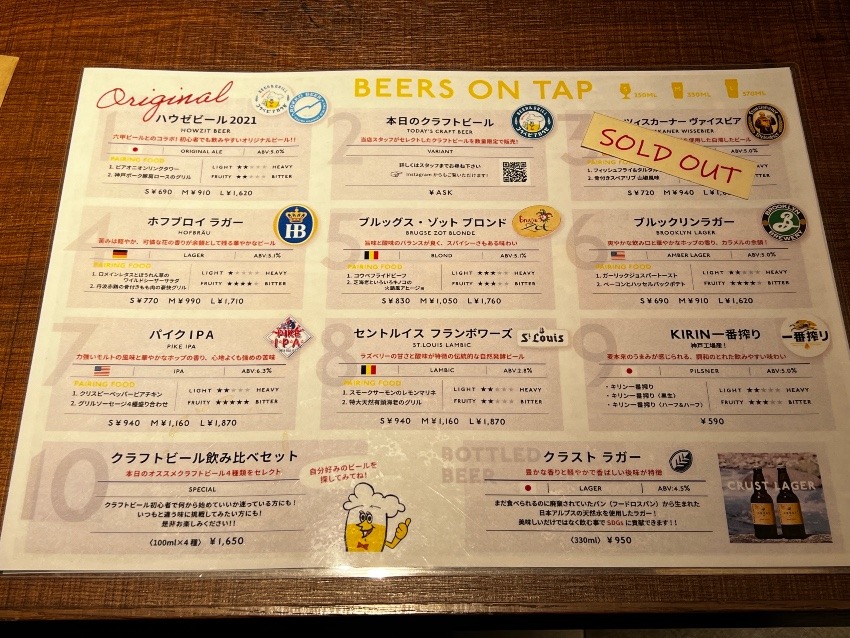 Original
BEERS ON TAP
250ML 350ML 570ML
1
ハウゼビール 2021
HOWZIT BEER
六甲ビールとのコラボ! 初心者でも飲みやすいオリジナルビール!!
ORIGINAL ALE ABV:5.0%
PAIRING FOOD
1. ビアオニオンリングタワー
2. 神戸ポーク肩肩ロースのグリル
LIGHT ★★☆☆☆ HEAVY
FRUITY ★★☆☆☆ BITTER
S ¥690 M ¥910 L ¥1,620
2
本日のクラフトビール
TODAY'S CRAFT BEER
当店スタッフがセレクトしたクラフトビールを数量限定で販売!
VARIANT
詳しくはスタッフまでお尋ね下さい
Instagram からもご覧いただけます!
¥ASK
3
ツィスカーナー ヴァイスビア
KANER WISSEBIER
使用した白濁したビール
SOLD OUT
ABV:5.0%
PAIRING FOOD
1. フィッシュフライ&タルタル
2. 骨付きスペアリブ 山椒風味
HEAVY
BITTER
S ¥720 M ¥940
4
ホフブロイ ラガー
HOFBRÄU
重みは軽やか、可憐な花の香りが余韻として残る華やかなビール
LAGER ABV:5.1%
PAIRING FOOD
1. ロメインレタスとほうれん草の
ワイルドシーザーサラダ
2. 丹波赤鶏の骨付きもも肉の豪快グリル
LIGHT ★☆☆☆☆ HEAVY
FRUITY ★★★☆☆ BITTER
S ¥770 M ¥990 L ¥1,710
5
ブルッグス・ゾット ブロンド
BRUGSE ZOT BLONDE
旨味と酸味のバランスが良く、スパイシーさもある味わい
BLOND ABV:5.1%
PAIRING FOOD
1. コウベフライドビーフ
2. 芝海老といろいろキノコの
火鍋風アヒージョ
LIGHT ★★★☆☆ HEAVY
FRUITY ★★★☆☆ BITTER
S ¥830 M ¥1,050 L ¥1,760
6
ブルックリンラガー
BROOKLYN LAGER
爽やかな飲み口と華やかなホップの香り、カラメルの余韻!
AMBER LAGER ABV:5.0%
PAIRING FOOD
1. ガーリックジョスパートースト
2. ベーコンとハッセルバックポテト
LIGHT ★★☆☆☆ HEAVY
FRUITY ★★★★☆ BITTER
S ¥690 M ¥910 L ¥1,620
7
パイク IPA
PIKE IPA
力強いモルトの風味と華やかなホップの香り、心地よくも強めの苦味
IPA ABV:6.3%
PAIRING FOOD
1. クリスピーペッパービアチキン
2. グリルソーセージ4種盛り合わせ
LIGHT ★★☆☆☆ HEAVY
FRUITY ★★★★★ BITTER
S ¥940 M ¥1,160 L ¥1,870
8
セントルイス フランボワーズ
ST.LOUIS LAMBIC
St Louis
ラズベリーの甘さと酸味が特徴の伝統的な自然発酵ビール
LAMBIC ABV:2.8%
PAIRING FOOD
1. スモークサーモンのレモンマリネ
2. 特大天然有頭海老のグリル
LIGHT ★☆☆☆☆ HEAVY
FRUITY ★☆☆☆☆ BITTER
S ¥940 M ¥1,160 L ¥1,870
9
KIRIN一番搾り
神戸工場産!
一番搾り
麦本来のうまみが感じられる、調和のとれた飲みやすい味わい
PILSNER ABV:5.0%
・キリン一番搾り
・キリン一番搾り〈黒生〉
・キリン一番搾り〈ハーフ&ハーフ〉
LIGHT ★★☆☆☆ HEAVY
FRUITY ★★☆☆☆ BITTER
¥590
10
クラフトビール飲み比べセット
本日のオススメクラフトビール4種類をセレクト
SPECIAL
クラフトビール初心者で何から始めていいか迷っている方にも!
いつもと違う味に挑戦してみたい方にも!
是非お楽しみください!!
〈100ml×4種〉 ¥1,650
自分好みのビールを
探してみてね!
BOTTLED
BEER
クラスト ラガー
豊かな香りと軽やかで香ばしい後味が特徴
LAGER ABV:4.5%
まだ食べられるのに廃棄されていたパン(フードロスパン)から生まれた
日本アルプスの天然水を使用したラガー!
美味しいだけではなく飲む事で SDGs に貢献できます!!
〈330ml〉 ¥950
CRUST LAGER